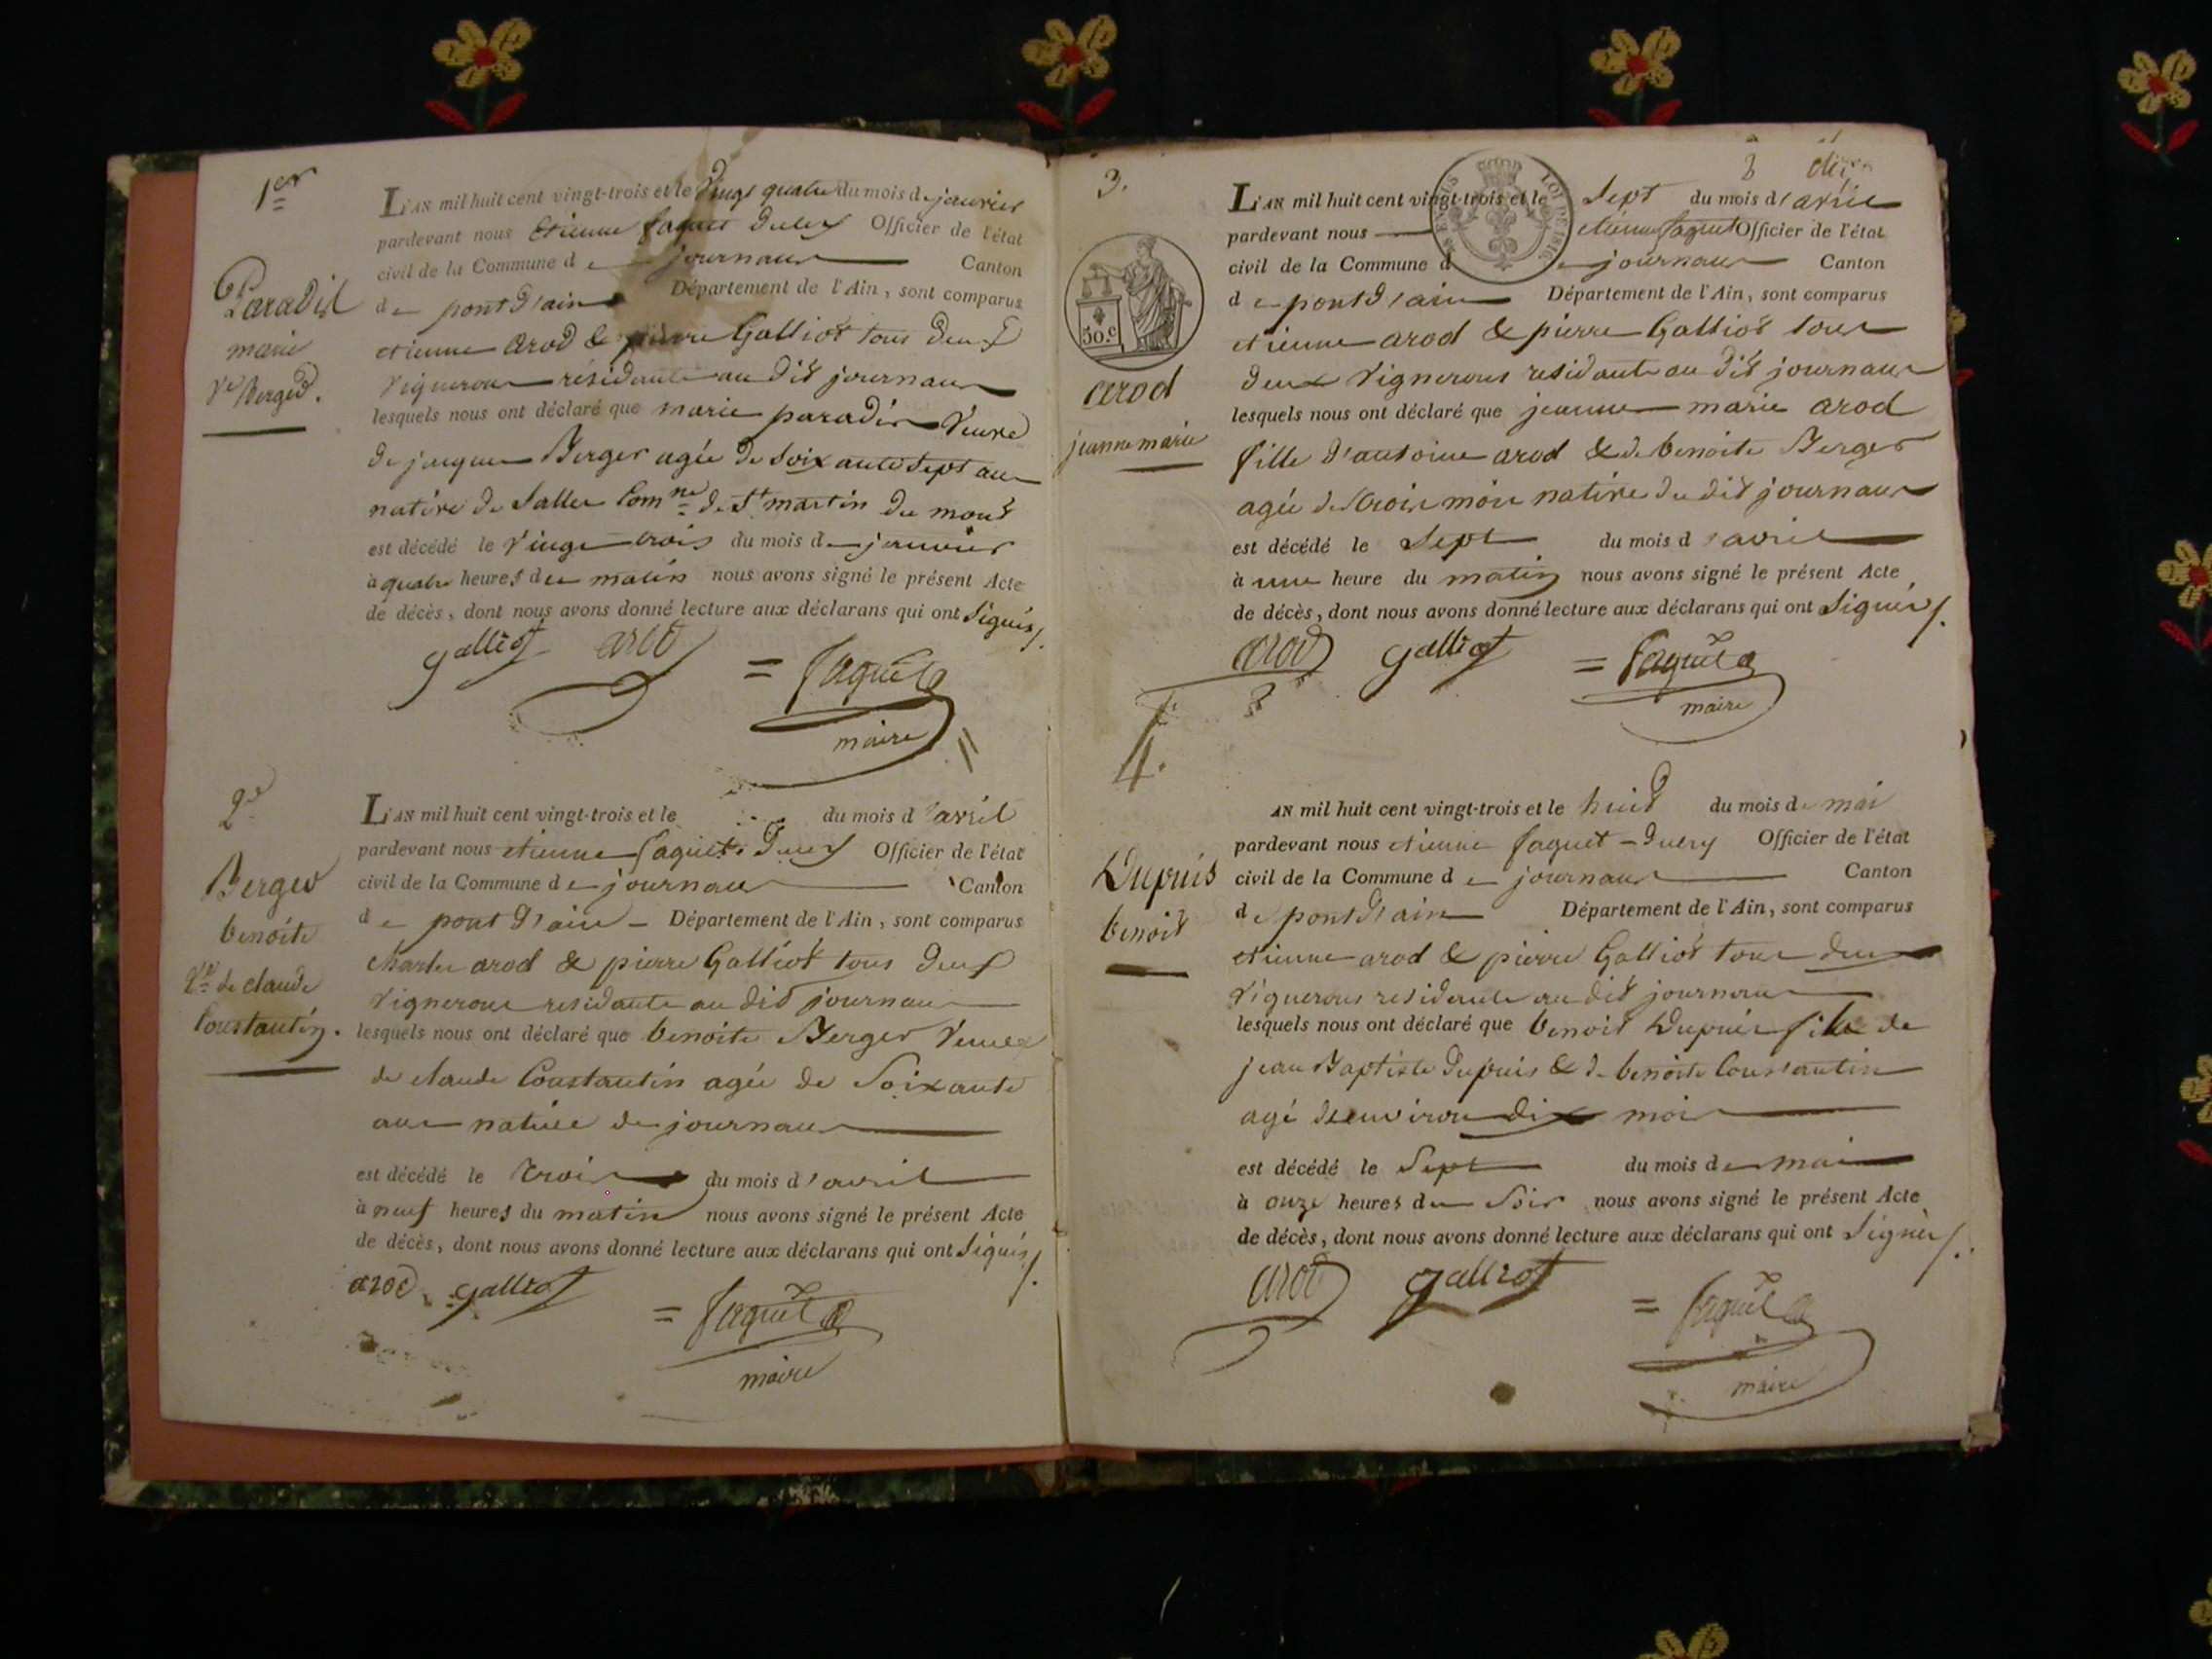 1er
L'AN mil huit cent vingt-trois et le vingt quatre du mois de janvier
pardevant nous etienne faguet Officier de l'état
civil de la Commune de journans Canton
de pont d'ain Département de l'Ain, sont comparus
etienne arod & pierre Galliot tous deux
vignerons résidants au dit journans
lesquels nous ont déclaré que marie paradis veuve
de jacques Berger agée de soixante sept ans
native de Salles Comne de St martin du mont
est décédé le vingt trois du mois de janvier
à quatre heures du matin nous avons signé le présent Acte
de décès, dont nous avons donné lecture aux déclarans qui ont signés /.
galliot arod = faguet
maire
Paradis
marie
ve Berger.
2e
L'AN mil huit cent vingt-trois et le du mois d'avril
pardevant nous etienne faguet Officier de l'état
civil de la Commune de journans Canton
de pont d'ain Département de l'Ain, sont comparus
charles arod & pierre Galliot tous deux
vignerons residants au dit journans
lesquels nous ont déclaré que benoite Berger veuve
de claude Constantin agée de soixante
ans native de journans
est décédé le trois du mois d'avril
à neuf heures du matin nous avons signé le présent Acte
de décès, dont nous avons donné lecture aux déclarans qui ont signés /.
arod galliot = faguet
maire
Berger
benoite
ve de claude
Constantin.
3.
L'AN mil huit cent vingt-trois et le sept du mois d'avril
pardevant nous etienne faguet Officier de l'état
civil de la Commune de journans Canton
de pont d'ain Département de l'Ain, sont comparus
etienne arod & pierre Galliot tous
deux vignerons residants au dit journans
lesquels nous ont déclaré que jeanne marie arod
fille d'antoine arod & de benoite Berger
agée de trois mois native du dit journans
est décédé le sept du mois d'avril
à une heure du matin nous avons signé le présent Acte
de décès, dont nous avons donné lecture aux déclarans qui ont signés /.
arod galliot = faguet
maire
LOI DE 1816
50.c
arod
jeanne marie
4.
AN mil huit cent vingt-trois et le huit du mois de mai
pardevant nous etienne faguet - duery Officier de l'état
civil de la Commune de journans Canton
de pont d'ain Département de l'Ain, sont comparus
etienne arod & pierre Galliot tous deux
vignerons residants au dit journans
lesquels nous ont déclaré que benoit Dupuis fils de
jean Baptiste Dupuis & de benoite Constantin
agé de environ dix mois
est décédé le sept du mois de mai
à onze heures du soir nous avons signé le présent Acte
de décès, dont nous avons donné lecture aux déclarans qui ont signés /.
arod galliot = faguet
maire
Dupuis
benoit